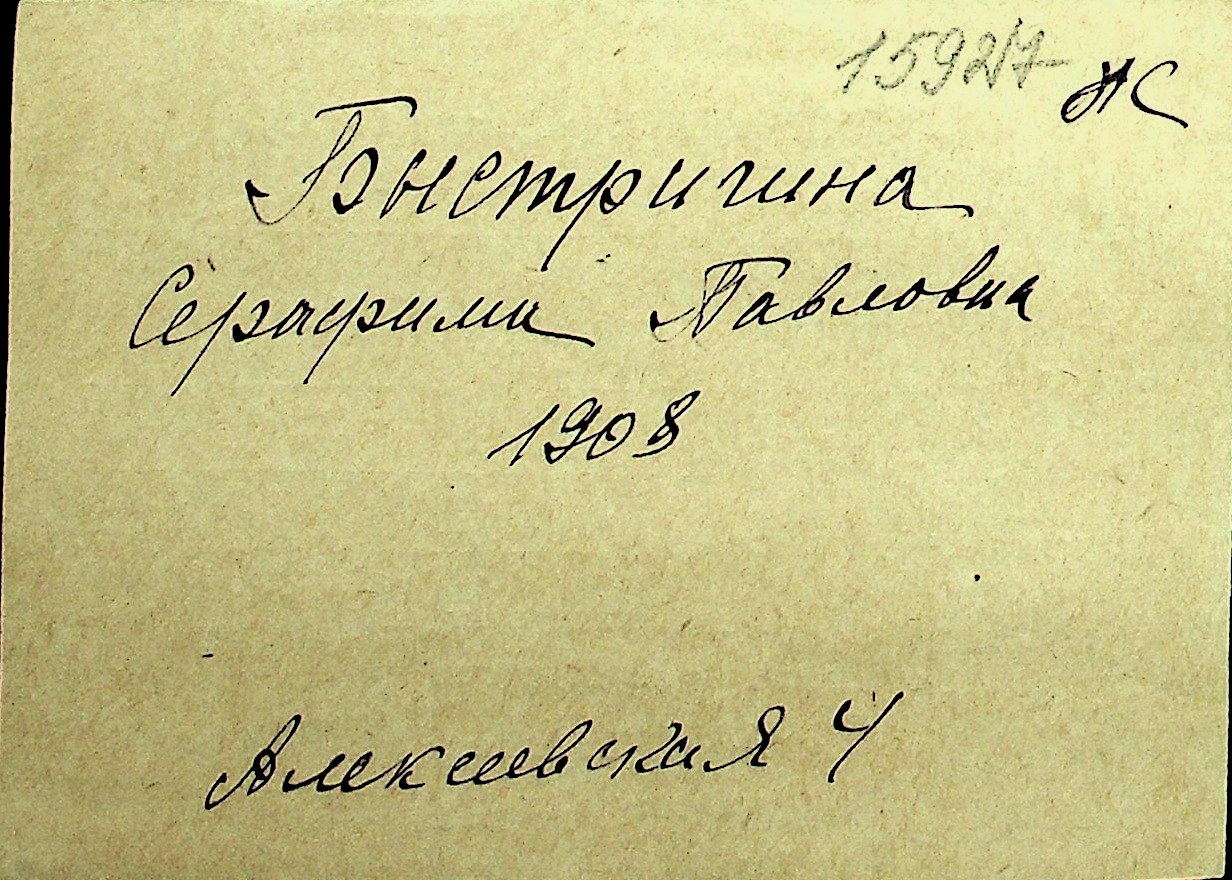 15927 Ж
Быстригина
Серафима Павловна
1908
Алексеевская 4